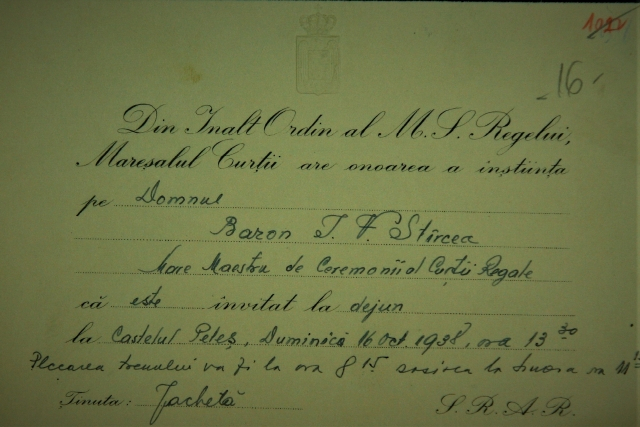 16
Din Inalt Ordin al M. S. Regelui,
Mareșalul Curții are onoarea a înștiința
pe Domnul
Baron I. V. Stîrcea
Mare Maestru de Ceremonii al Curții Regale
că este invitat la dejun
la Castelul Peleș, Duminică 16 Oct. 1938, ora 13 30
Plecarea trenului va fi la ora 8 15 sosirea la Sinaia
Ținuta: Jachetă
S. R. A. R.